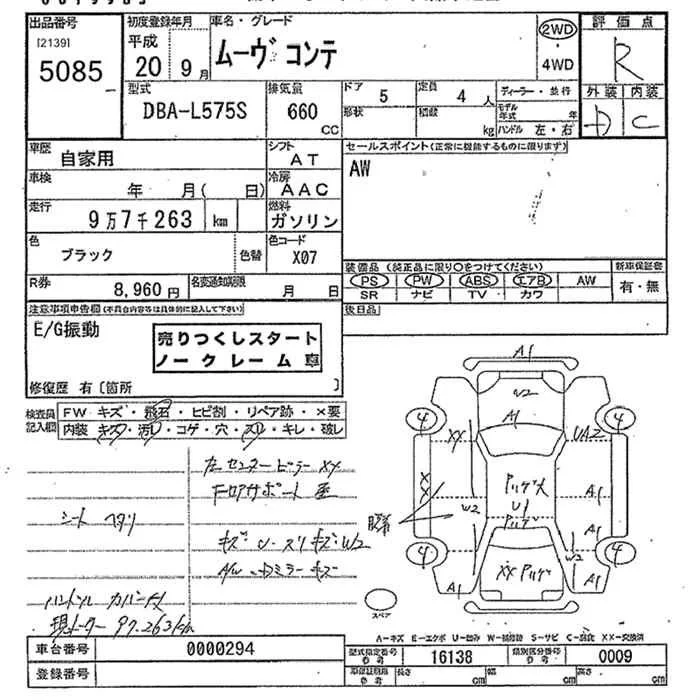 出品番号
[2139]
5085
初度登録年月
平成
20 9月
車名・グレード
ムーヴ コンテ
2WD
・
4WD
評価点
R
外装 内装
D C
型式
DBA-L575S
排気量
660
CC
ドア 5
形状
定員 4 人
積載 kg
ディーラー・並行
モデル年式 年
ハンドル 左・右
車歴
自家用
シフト
AT
セールスポイント(正常に機能するものに限ります)
AW
車検
年 月( 日)
冷房
AAC
走行
9万7千263 km
燃料
ガソリン
色
ブラック
色替
色コード
X07
装備品 (純正品に限り○をつけてください)
新車保証書
PS PW ABS エアB AW
有・無
SR ナビ TV カワ
R券
8,960円
名変通知期限
月 日
後日品
注意事項申告欄(不具合内容等は具体的に記入して下さい)
E/G振動
売りつくしスタート
ノークレーム 車
修復歴 有〔箇所 〕
検査員
記入欄
FW キズ・飛石・ヒビ割・リペア跡・×要
内装 キズ・汚レ・コゲ・穴・スレ・キレ・破レ
左センターピラーXX
シート ヘタリ
キズ・U・スリキズ・W2
A/W
ドミラーキズ
現メーター 97.263km
A1
W2
A1
4
4
XX
UA2
XX
W2
U1
A1
A1
W2
4
4
XX
A1
A1
スペア
A-キズ E-エクボ U-凹み W-補修跡 S-サビ C-腐蝕 XX-交換済
車台番号
0000294
登録番号
型式指定番号
参考
16138
類別区分番号
参考
0009
長さ cm
幅 cm
高さ cm